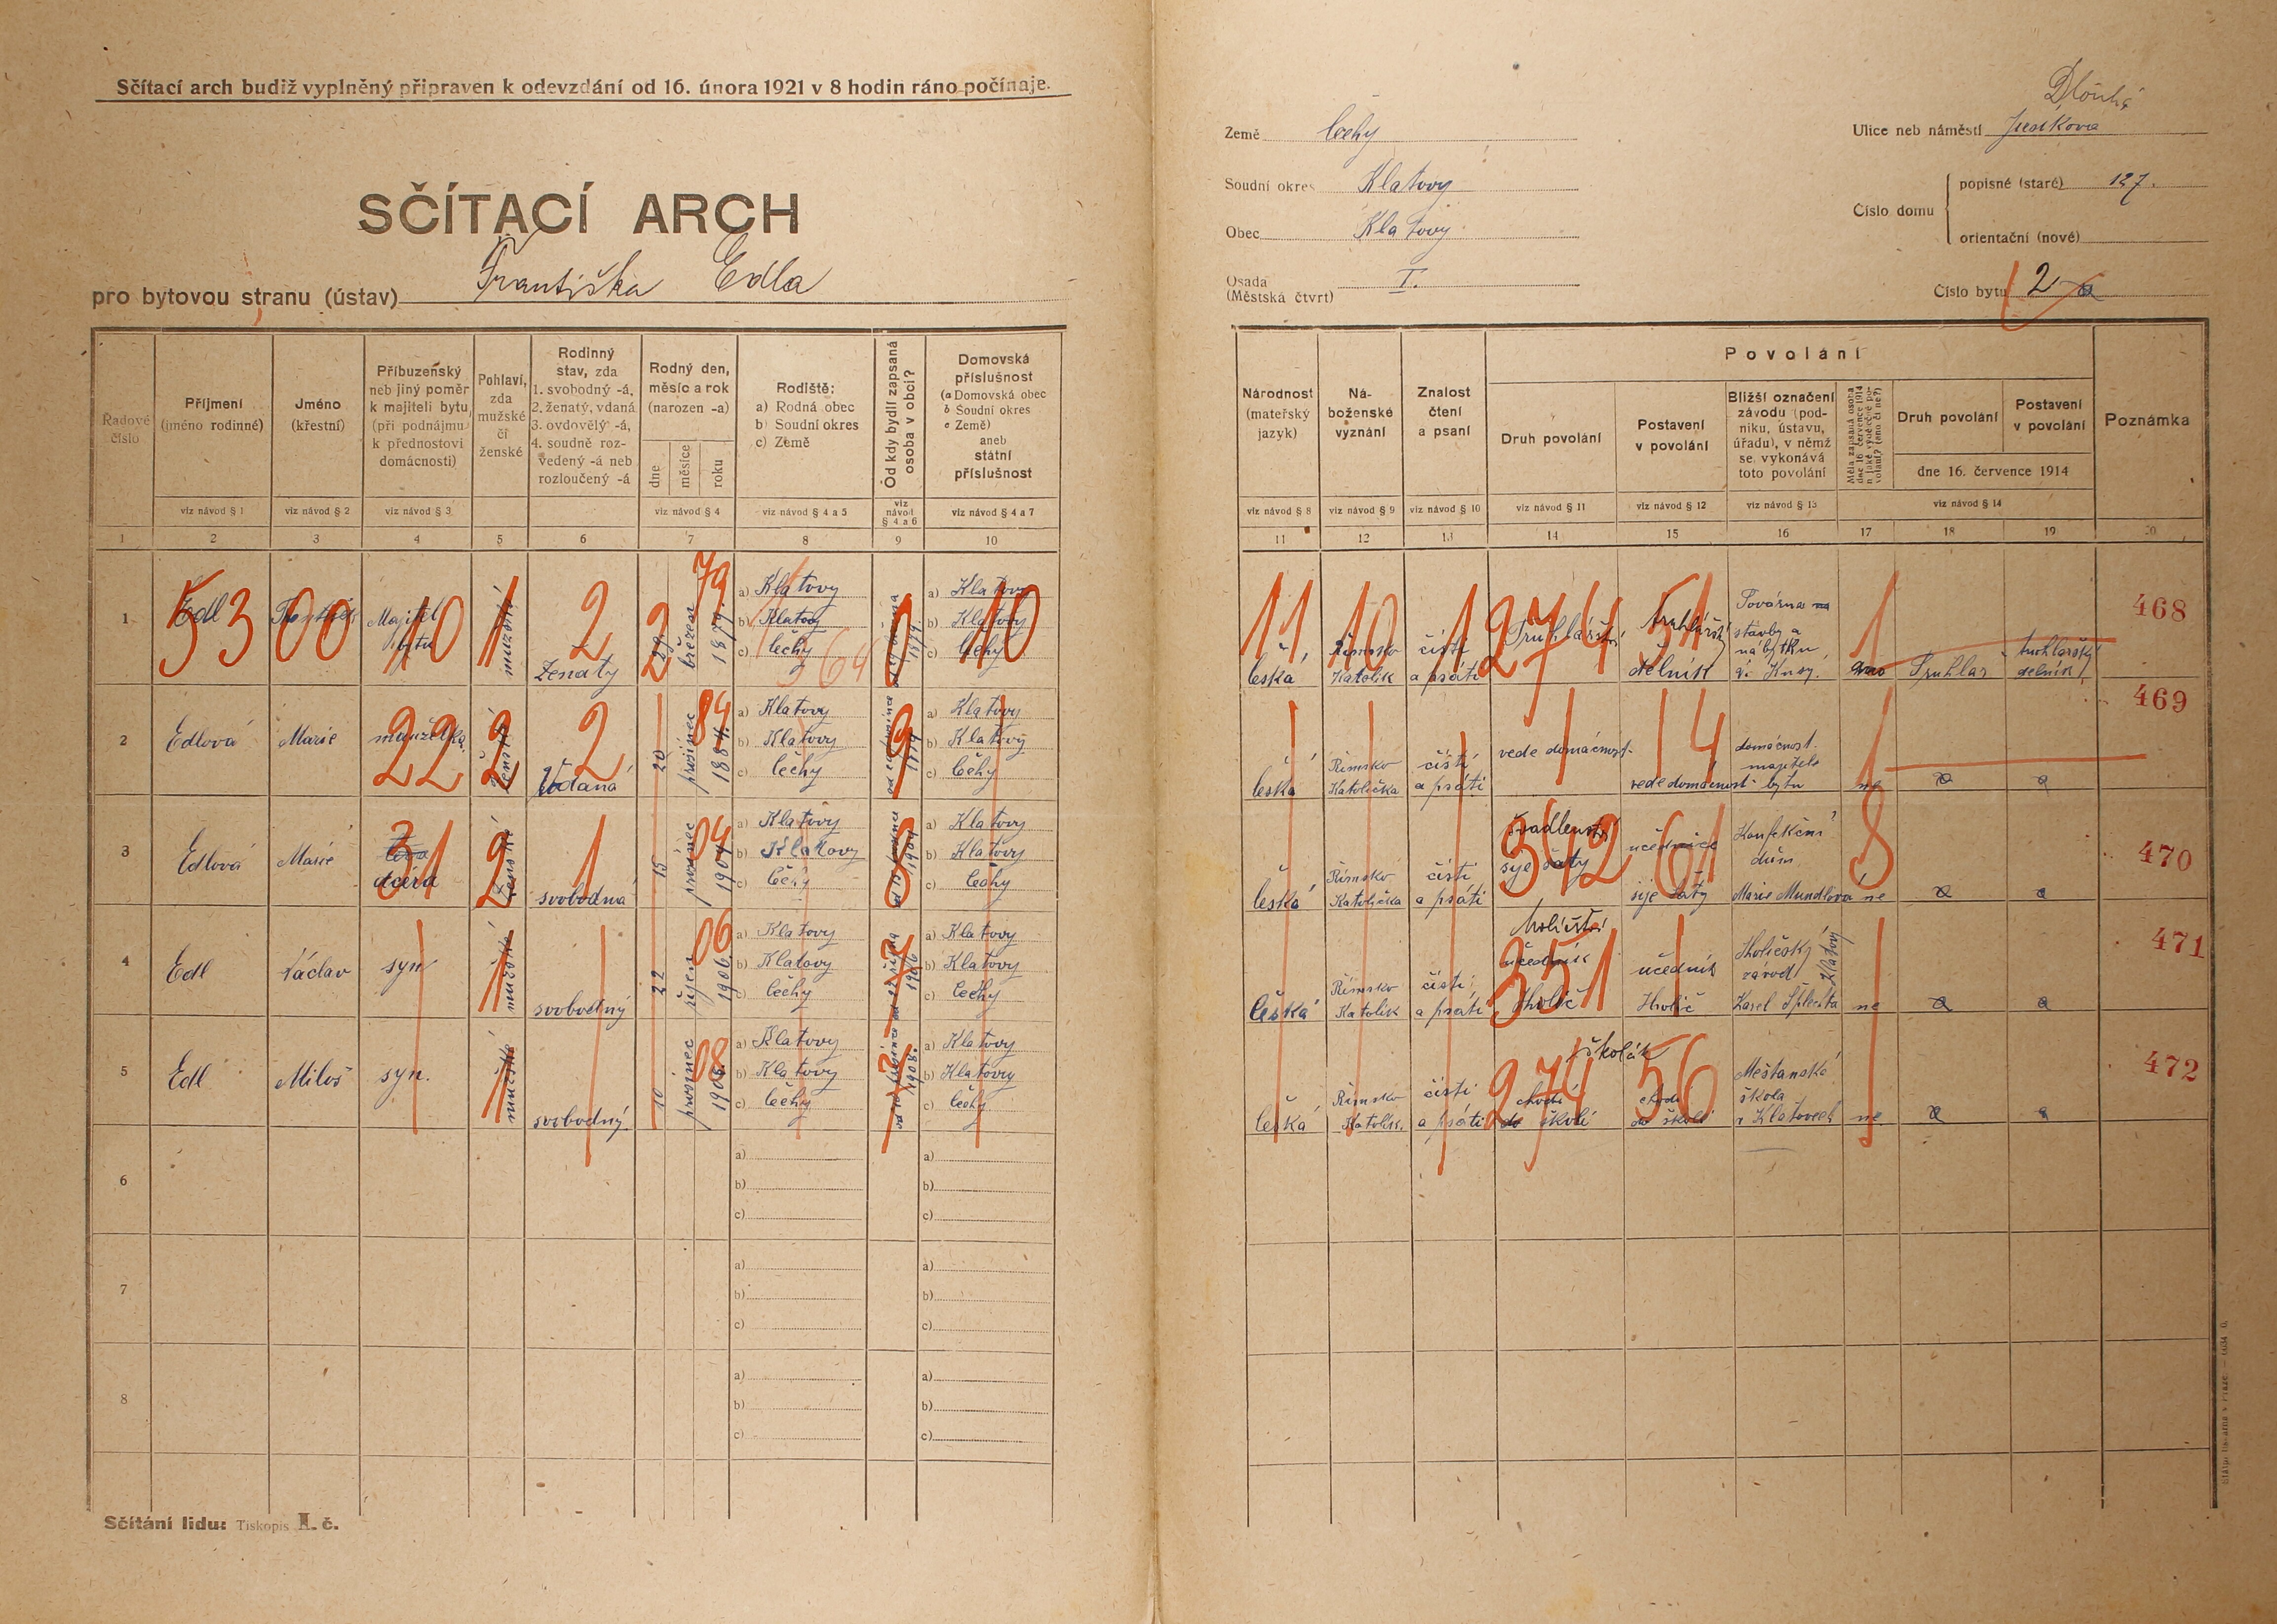 Sčítací arch budiž vyplněný připraven k odevzdání od 16. února 1921 v 8 hodin ráno počínaje.
SČÍTACÍ ARCH
pro bytovou stranu (ústav) Františka Edla
Země Čechy
Soudní okres Klatovy
Obec Klatovy
Osada
(Městská čtvrt) I.
Dlouhá
Ulice neb náměstí
Číslo domu
popisné (staré) 127.
orientační (nové)
Číslo bytu 2
Řadové
číslo
Příjmení
(jméno rodinné)
Jméno
(křestní)
Příbuzenský
neb jiný poměr
k majiteli bytu
(při podnájmu
k přednostovi
domácnosti)
Pohlaví,
zda
mužské
či
ženské
Rodinný
stav, zda
1. svobodný -á,
2. ženatý, vdaná
3. ovdovělý -á,
4. soudně roz-
vedený -á neb
rozloučený -á
Rodný den,
měsíc a rok
(narozen -a)
dne
měsíce
roku
Rodiště:
a) Rodná obec
b) Soudní okres
c) Země
Od kdy bydlí zapsaná
osoba v obci?
Domovská
příslušnost
(a Domovská obec
b Soudní okres
c Země)
aneb
státní
příslušnost
viz návod § 1
viz návod § 2
viz návod § 3
viz návod § 4
viz návod § 4 a 5
viz
návod
§ 4 a 6
viz návod § 4 a 7
1 2 3 4 5 6 7 8 9 10
Národnost
(mateřský
jazyk)
Ná-
boženské
vyznání
Znalost
čtení
a psaní
Povolání
Druh povolání
Postavení
v povolání
Bližší označení
závodu (pod-
niku, ústavu,
úřadu), v němž
se vykonává
toto povolání
Měla zapsaná osoba
dne 16. července 1914
Druh povolání
Postavení
v povolání
dne 16. července 1914
Poznámka
viz návod § 8
viz návod § 9
viz návod § 10
viz návod § 11
viz návod § 12
viz návod § 13
viz návod § 14
11 12 13 14 15 16 17 18 19 20
1
Edl
53 00
Majitel
bytu
10
1
mužské
2
ženatý
29.
březen
1879.
79
a) Klatovy
b) Klatovy
c) Čechy
a) Klatovy
b) Klatovy
c) Čechy
10
11
česká
10
Římsko
Katolík
1
čísti
a psáti
274
Truhlářství
51
Truhlářský
dělník
Továrna na
stavby a
nábytku
1
ano
Truhlář
truhlářský
dělník
468
2
Edlová
Marie
manželka
22
2
ženské
2
Vdaná
20
prosinec
1884.
84
a) Klatovy
b) Klatovy
c) Čechy
9
a) Klatovy
b) Klatovy
c) Čechy
česká
Římsko
Katolička
čísti
a psáti
vede domácnost.
14
vede domácnost
domácnost
majitele
bytu
ne
469
3
Edlová
Marie
31
dcera
2
ženské
1
svobodná
15
prosinec
1904
04
a) Klatovy
b) Klatovy
c) Čechy
a) Klatovy
b) Klatovy
c) Čechy
česká
Římsko
Katolička
čísti
a psáti
312
šije šaty
61
učednice
šije šaty
Konfekční
dům
Marie Mundlová
8
ne
470
4
Edl
Václav
syn
1
mužské
svobodný
22
říjen
1906.
06
a) Klatovy
b) Klatovy
c) Čechy
a) Klatovy
b) Klatovy
c) Čechy
česká
Římsko
Katolík
čísti
a psáti
Holičství
učedník
351
Holič
učedník
Holič
Holičský
závod
Klatovy
Karel Šplechta
ne
471
5
Edl
Miloš
syn.
1
mužské
svobodný.
10
prosinec
1908
08
a) Klatovy
b) Klatovy
c) Čechy
1908.
a) Klatovy
b) Klatovy
c) Čechy
česká
Římsko
Katolík.
čísti
a psáti
školák
274
chodí
do školi
56
chodí
do školi
Měšťanská
škola
v Klatovech
ne.
472
6
a)
b)
c)
a)
b)
c)
7
a)
b)
c)
a)
b)
c)
8
a)
b)
c)
a)
b)
c)
Sčítání lidu: Tiskopis I. č.